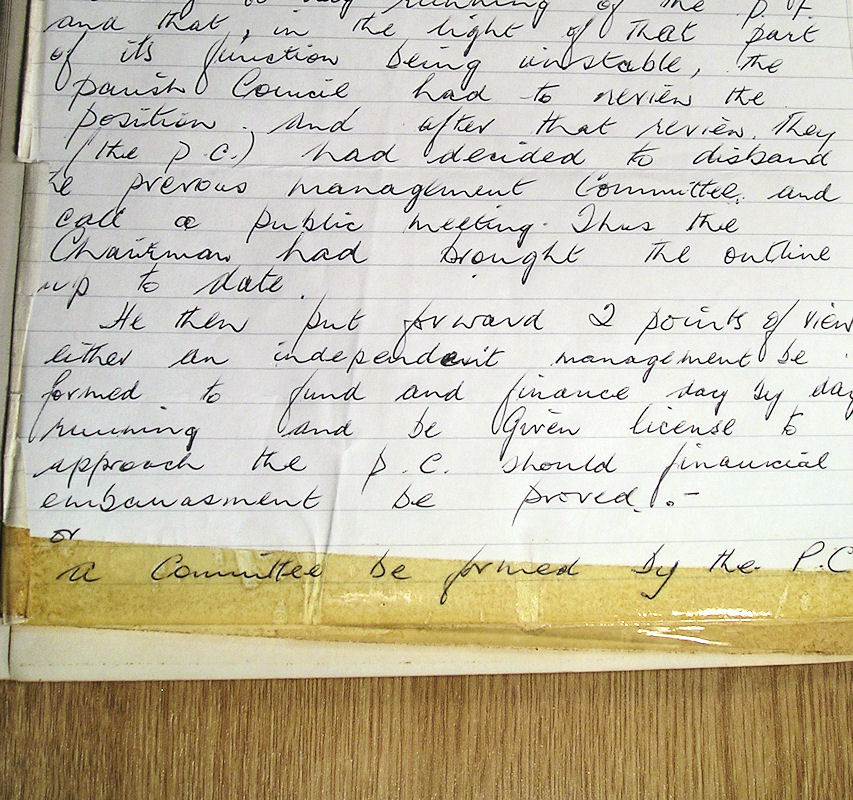 running of the P.F.
and that, in the light of that part
of its function being unstable, the
parish Council had to review the
position. And after that review. They
(the P.C.) had decided to disband
prevous management Committee. and
call a public meeting. Thus the
Chairman had brought the outline
up to date.
He then put forward 2 points of view
either an independent management be
formed to fund and finance day by day
running and be Given license to
approach the P.C. should financial
embarrasment be proved. :-
or
a Committee be formed by the P.C